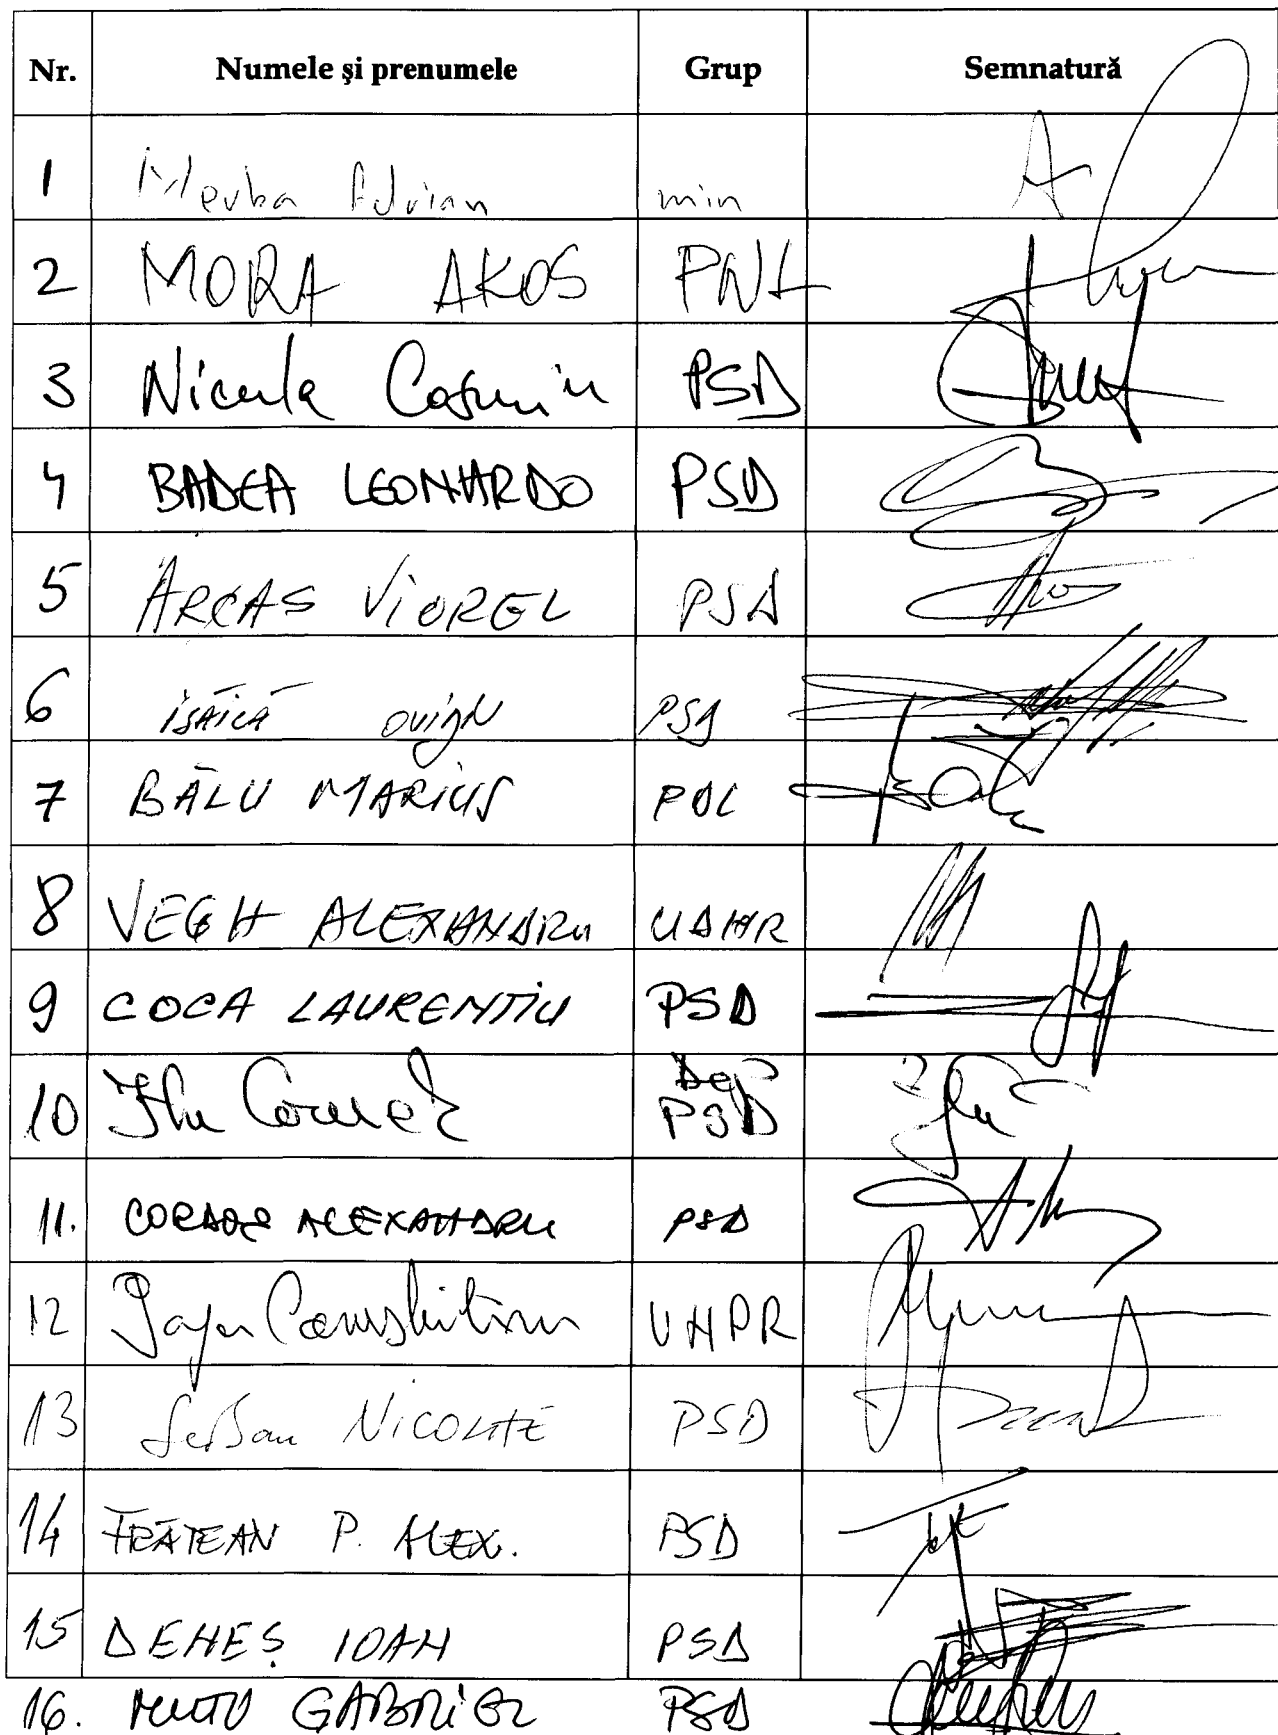 Nr. Numele şi prenumele Grup Semnatură
1 Merka Adrian min
2 MORA AKOS PNL
3 Nicula Cosmin PSD
4 BADEA LEONARDO PSD
5 ARCAS VIOREL PSD
6 ISĂILĂ OVIDIU PSD
7 BĂLU MARIUS PDL
8 VEGH ALEXANDRU UDMR
9 COCA LAURENTIU PSD
10 Itu Cornel Dep PSD
11. CORDOȘ ALEXANDRU PSD
12 Popa Constantin UNPR
13 Serban NICOLAE PSD
14 FRĂTEAN P. ALEX. PSD
15 DENEȘ IOAN PSD
16. MUTU GABRIEL PSD